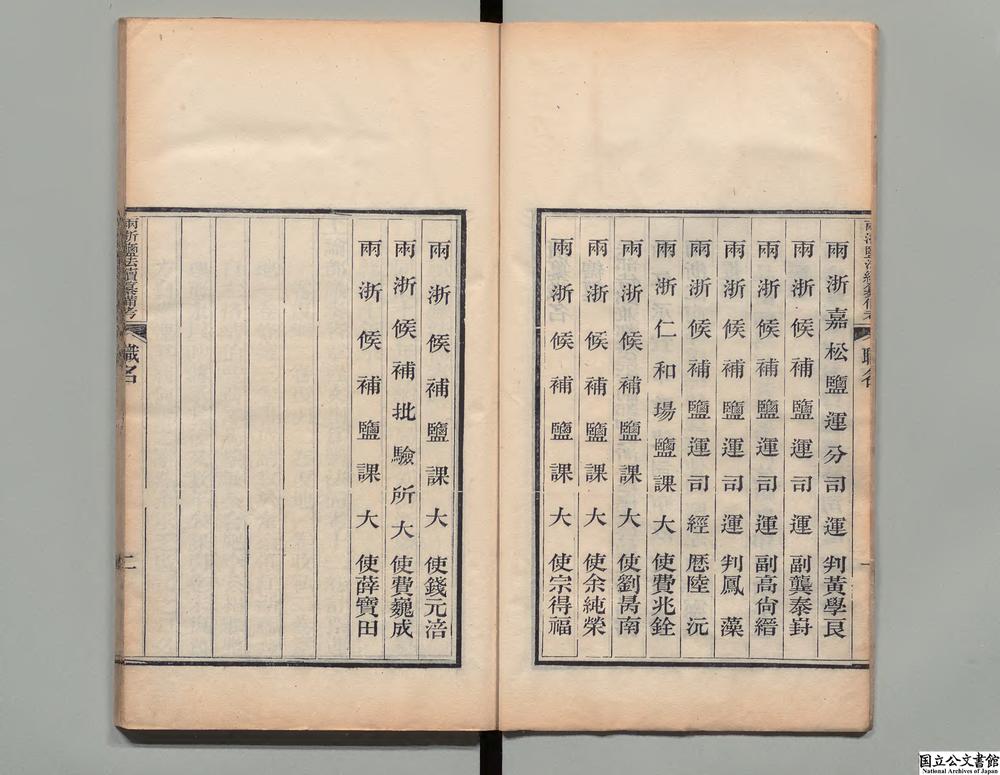 兩浙嘉松鹽運分司運判黃學良
兩浙候補鹽運司運副龔泰嵜
兩浙候補鹽運司運副高尙縉
兩浙候補鹽運司運判鳳藻
兩浙候補鹽運司經歷陸沅
兩浙仁和場鹽課大使費兆銓
兩浙候補鹽課大使劉昺南
兩浙候補鹽課大使余純榮
兩浙候補鹽課大使宗得福
兩浙鹽法續纂備考
職名
一
兩浙候補鹽課大使錢元涪
兩浙候補批驗所大使費巍成
兩浙候補鹽課大使薛寶田
兩浙鹽法續纂備考
職名
二
国立公文書館
National Archives of Japan